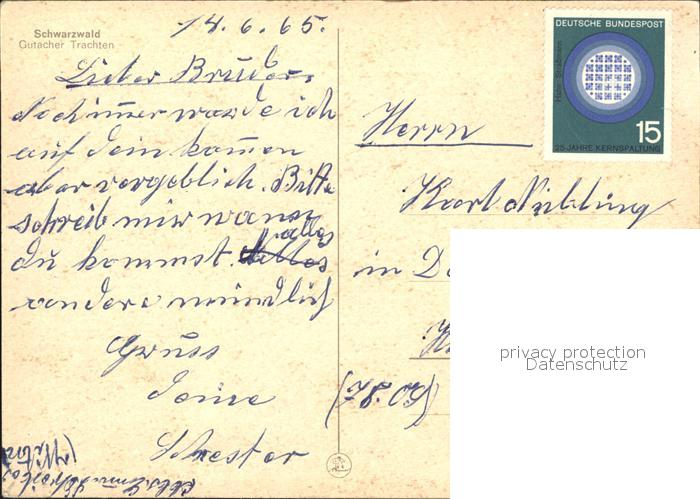 Schwarzwald
Gutacher Trachten
14.6.65.
Lieber Bruder.
Noch immer warde ich
auf dein komen
aber vergeblich. Bitte
schreib mir wann
du kommst. alles
andere mündlich
Gruss
deine
Schester
DEUTSCHE BUNDESPOST
Hahn · Straßmann
15
25 JAHRE KERNSPALTUNG
Herrn
Karl Nübling
in
privacy protection
Datenschutz